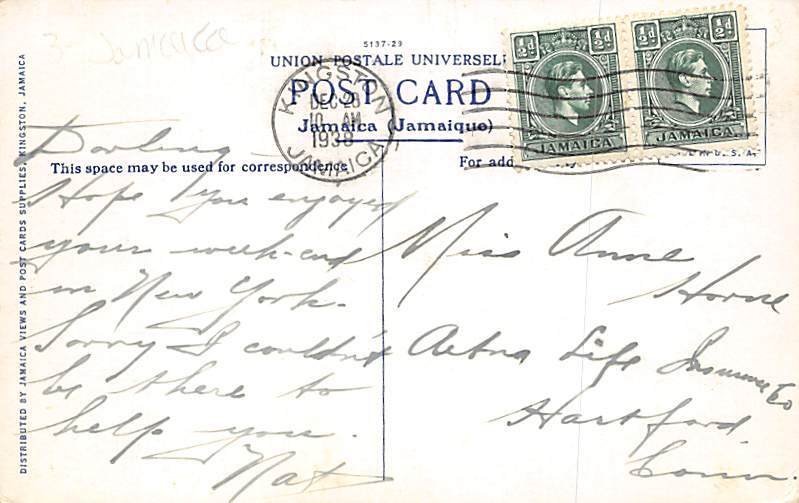 3- Jamaica
5137-29
UNION POSTALE UNIVERSEL
POST CARD
Jamaica (Jamaique)
KINGSTON
DEC 28
10 AM
1938
JAMAICA
½d ½d
JAMAICA
½d ½d
JAMAICA
U. S. A.
This space may be used for correspondence
For add
DISTRIBUTED BY JAMAICA VIEWS AND POST CARDS SUPPLIES, KINGSTON, JAMAICA
Darling -
Hope you enjoyed
your week-end
in New York.
Sorry I couldn't
be there to
help you.
Nat
Miss Anne
Horne
Aetna Life Insurance Co
Hartford,
Conn.